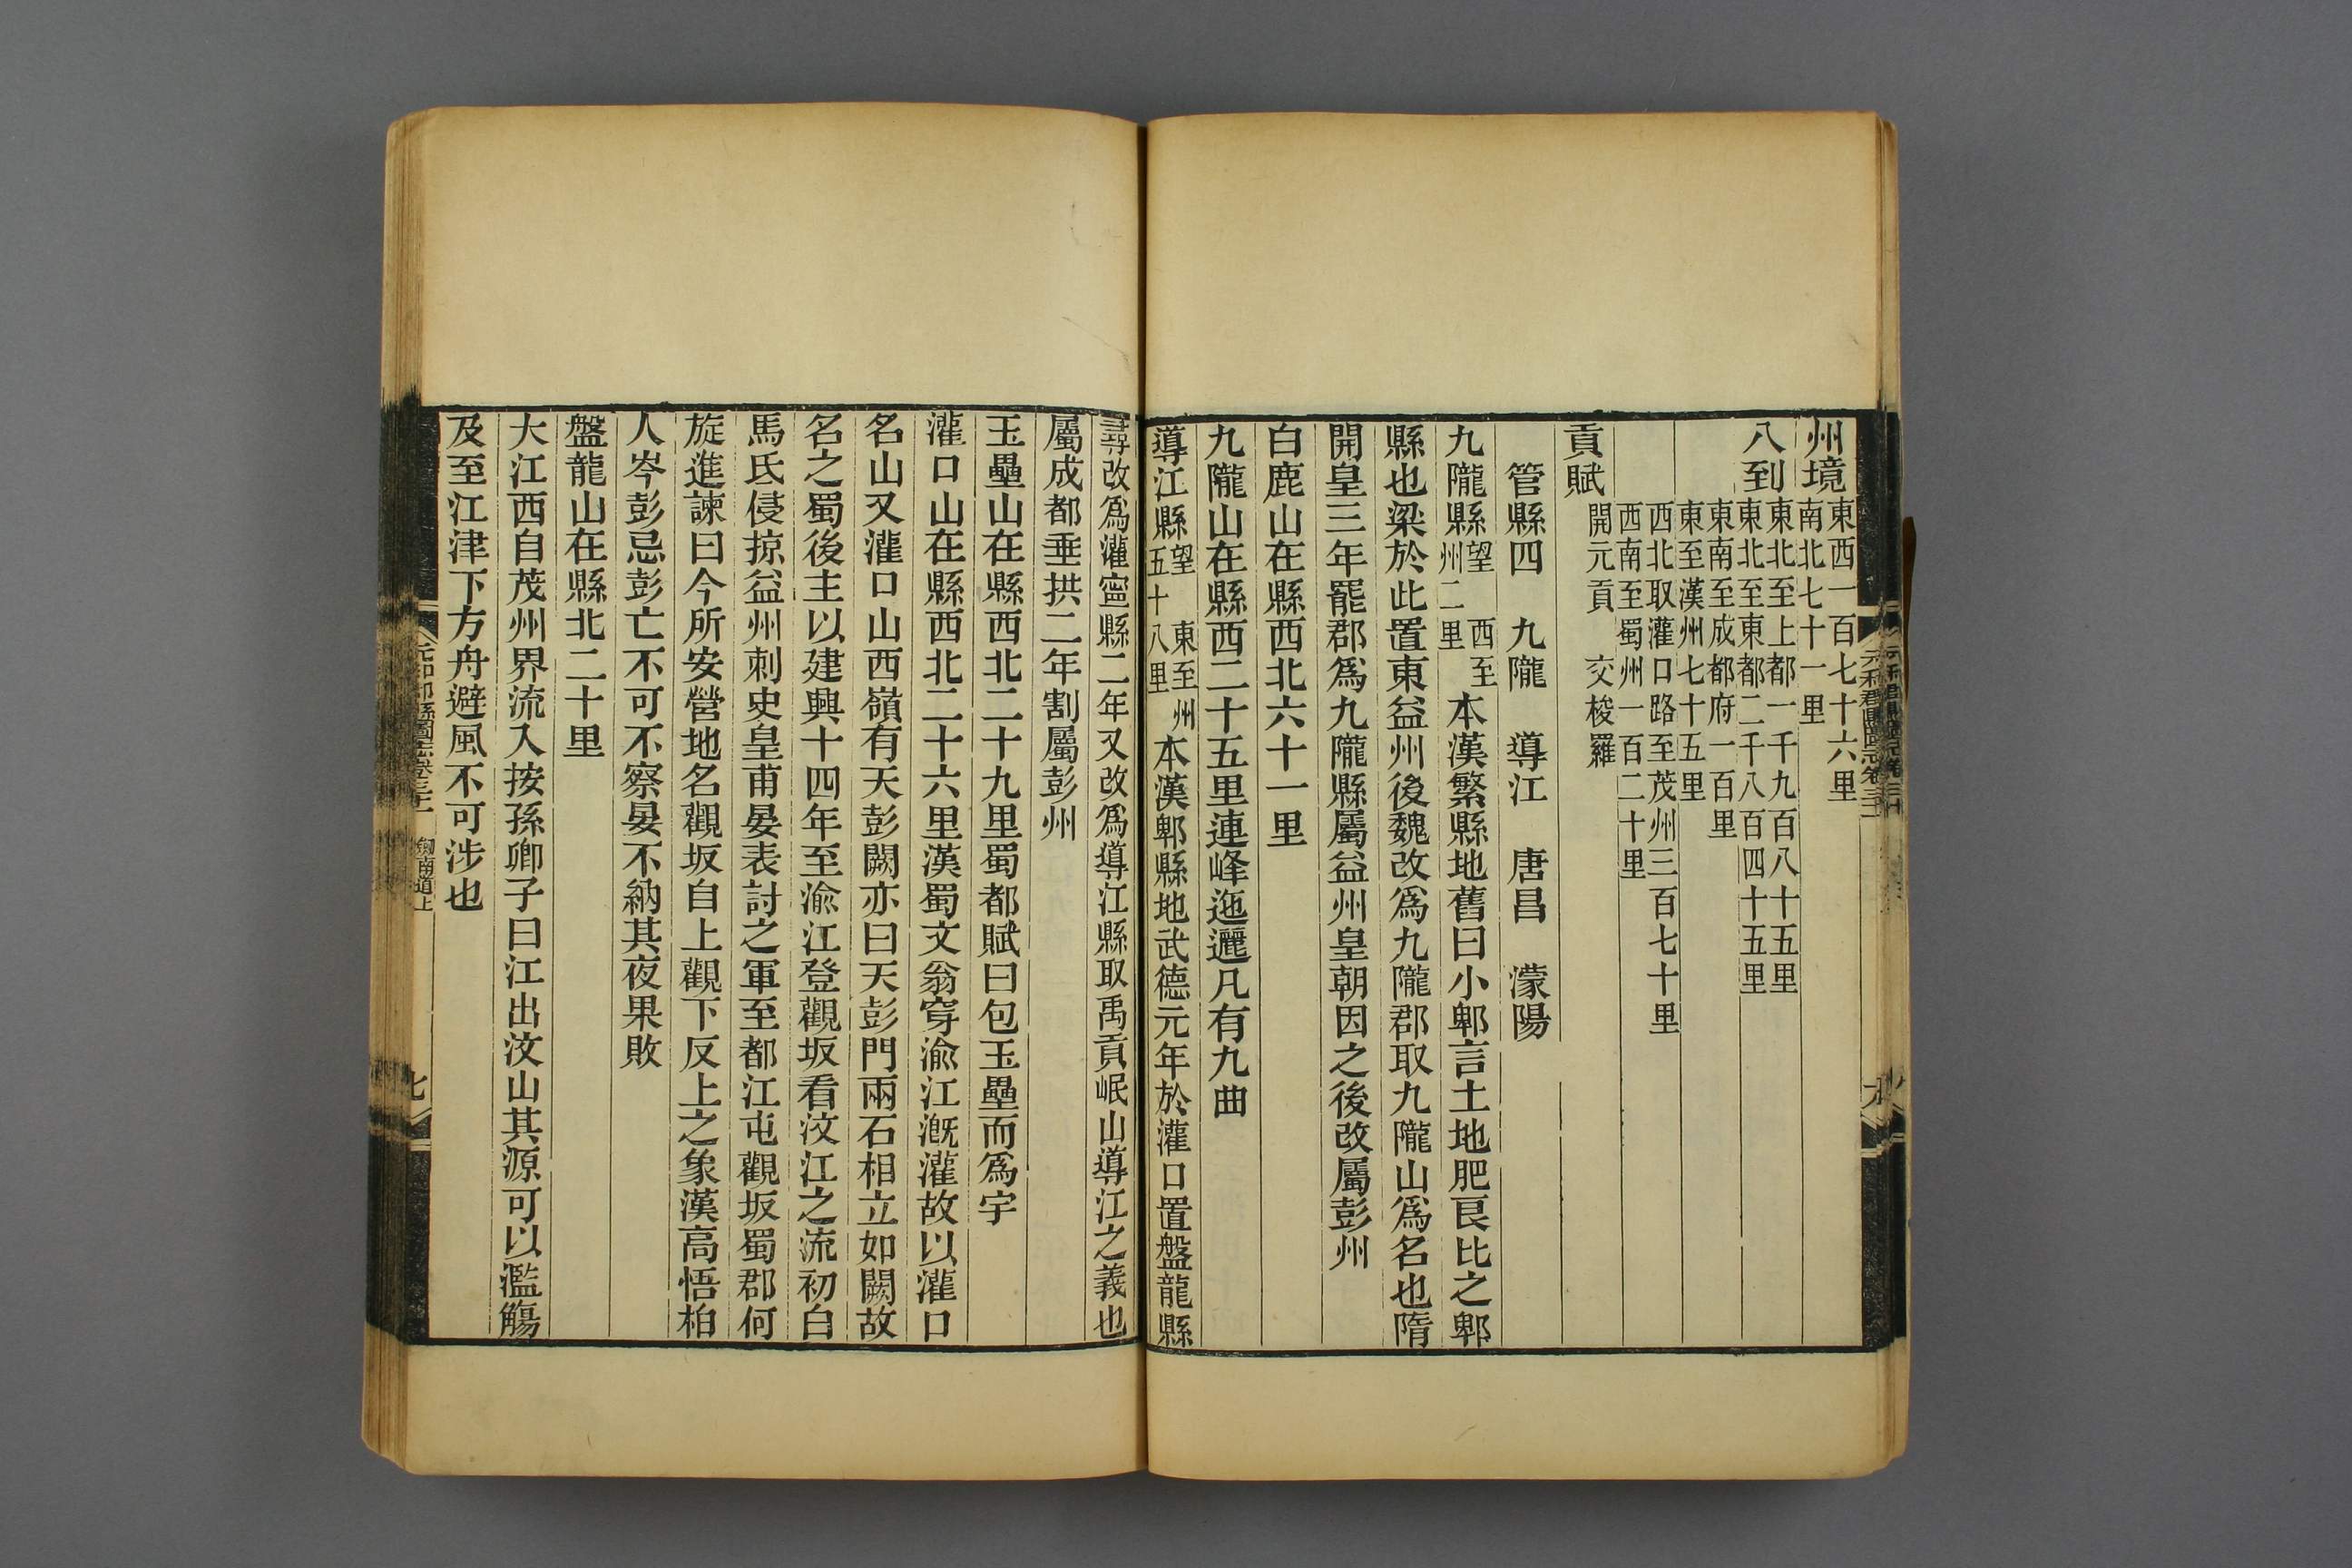 州境東西一百七十六里
南北七十一里
八到東北至上都一千九百八十五里
東北至東都二千八百四十五里
東南至成都府一百里
東至漢州七十五里
西北取灌口路至茂州三百七十里
西南至蜀州一百二十里
貢賦
開元貢 交梭羅
管縣四 九隴 導江 唐昌 濛陽
九隴縣望 西至州二里 本漢繁縣地舊曰小郫言土地肥良比之郫
縣也梁於此置東益州後魏改爲九隴郡取九隴山爲名也隋
開皇三年罷郡爲九隴縣屬益州皇朝因之後改屬彭州
白鹿山在縣西北六十一里
九隴山在縣西二十五里連峰迤邐凡有九曲
導江縣望 東至州五十八里 本漢郫縣地武德元年於灌口置盤龍縣
尋改爲灌寧縣二年又改爲導江縣取禹貢岷山導江之義也
屬成都垂拱二年割屬彭州
玉壘山在縣西北二十九里蜀都賦曰包玉壘而爲宇
灌口山在縣西北二十六里漢蜀文翁穿湔江溉灌故以灌口
名山又灌口山西嶺有天彭闕亦曰天彭門兩石相立如闕故
名之蜀後主以建興十四年至湔江登觀坂看汶江之流初白
馬氐侵掠益州刺史皇甫晏表討之軍至都江屯觀坂蜀郡何
旋進諫曰今所安營地名觀坂自上觀下反上之象漢高悟柏
人岑彭忌彭亡不可不察晏不納其夜果敗
盤龍山在縣北二十里
大江西自茂州界流入按孫卿子曰江出汶山其源可以濫觴
及至江津下方舟避風不可涉也
元和郡縣圖志卷三十一 劍南道上